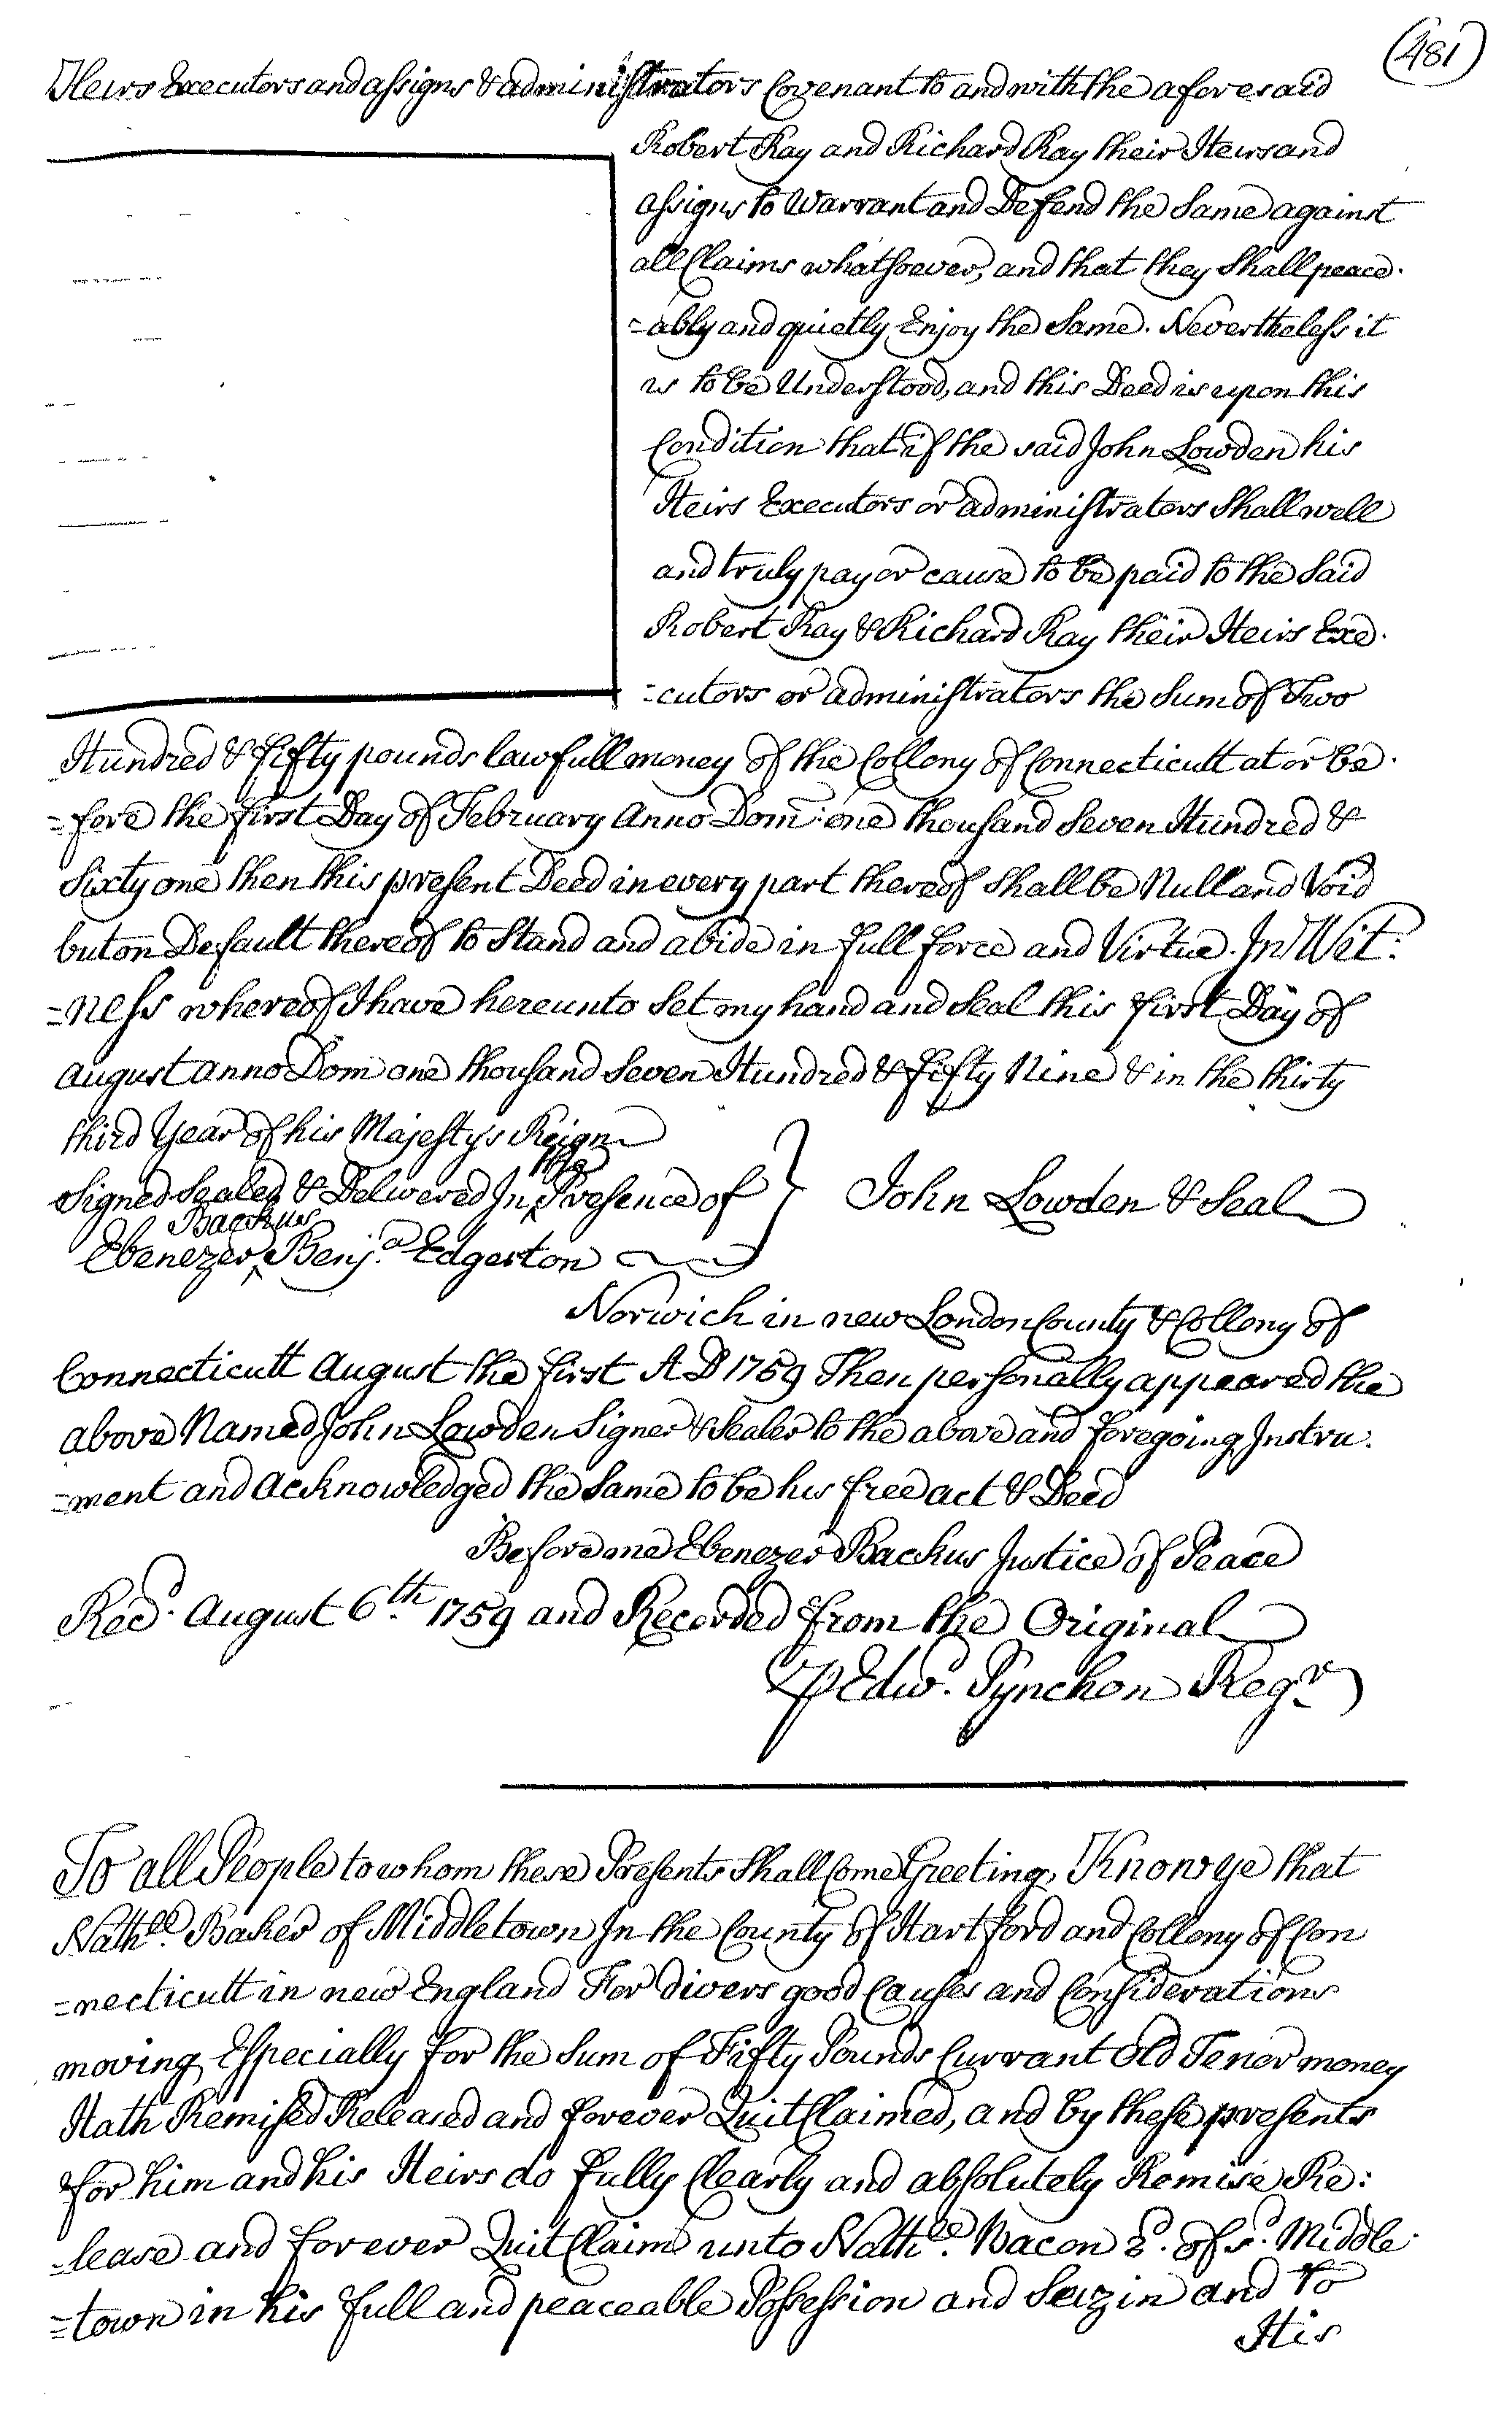 (481)
Heirs Executors and assigns & administrators Covenant to and with the aforesaid
Robert Ray and Richard Ray their Heirs and
assigns to Warrant and Defend the Same against
all Claims whatsoever, and that they Shall peace-
=ably and quietly Enjoy the Same. Nevertheless it
is to be Understood, and this Deed is upon this
Condition that if the said John Lowden his
Heirs Executors or administrators Shall well
and truly pay or cause to be paid to the Said
Robert Ray & Richard Ray their Heirs Exe-
=cutors or administrators the Sum of Two
Hundred & fifty pounds lawfull money of the Collony of Connecticutt at or be-
=fore the first Day of February Anno Dom: one thousand Seven Hundred &
Sixty one then this present Deed in every part thereof Shall be Null and Void
but on Default thereof to Stand and abide in full force and Virtue. In Wit:
=ness whereof I have hereunto Set my hand and Seal this first Day of
August anno Dom one thousand Seven Hundred & fifty Nine & in the thirty
third Year of his Majestys Reign
Signed Sealed & Delivered In ^the Presence of } John Lowden & Seal
Ebenezer ^Backus Benja. Edgerton
Norwich in new London County & Collony of
Connecticutt August the first A D 1759 Then personally appeared the
above Named John Lowden Signer & Sealer to the above and foregoing Instru-
=ment and acknowledged the Same to be his free act & Deed
Before me Ebenezer Backus Justice of Peace
Recd. August 6th. 1759 and Recorded from the Original
⅌ Edwd. Pynchon Regr
To all People to whom these Presents Shall Come Greeting, Know ye that
Nathll. Baker of Middletown In the County of Hartford and Collony of Con
=necticutt in new England For divers good Causes and Considerations
moving Especially for the Sum of Fifty Pounds Currant Old Tenor money
Hath Remised Released and forever Quit Claimed, and by these presents
for him and his Heirs do fully Clearly and absolutely Remise Re:
=lease and forever Quit Claim unto Nathll. Bacon 2d. of sd. Middle-
=town in his full and peaceable Possession and Seizin and to
His